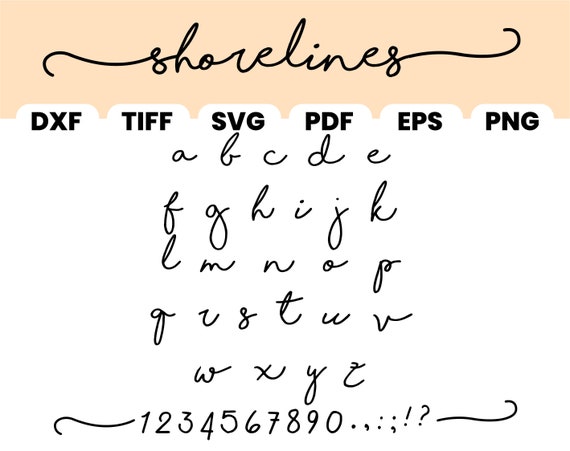 shorelines
DXF TIFF SVG PDF EPS PNG
a b c d e
f g h i j k
l m n o p
q r s t u v
w x y z
1 2 3 4 5 6 7 8 9 0 . , : ; ! ?